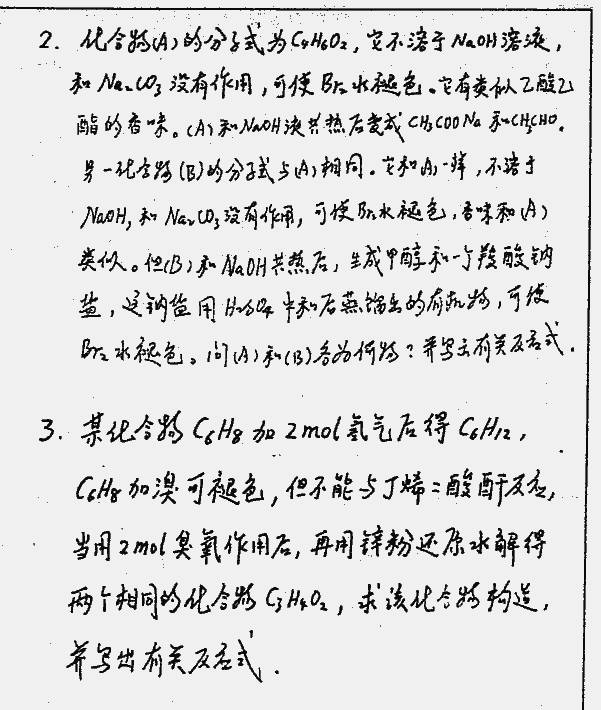 2. 化合物(A)的分子式为C₄H₆O₂，它不溶于NaOH溶液，
和Na₂CO₃没有作用，可使Br₂水褪色。它有类似乙酸乙
酯的香味。(A)和NaOH液共热后变成CH₃COONa和CH₃CHO。
另一化合物(B)的分子式与(A)相同。它和(A)一样，不溶于
NaOH，和Na₂CO₃没有作用，可使Br₂水褪色，香味和(A)
类似。但(B)和NaOH共热后，生成甲醇和一个羧酸钠
盐，这钠盐用H₂SO₄中和后蒸馏出的有机物，可使
Br₂水褪色。问(A)和(B)各为何物？并写出有关反应式.
3. 某化合物C₆H₈加2mol氢气后得C₆H₁₂，
C₆H₈加溴可褪色，但不能与丁烯二酸酐反应，
当用2mol臭氧作用后，再用锌粉还原水解得
两个相同的化合物C₃H₄O₂，求该化合物构造，
并写出有关反应式.